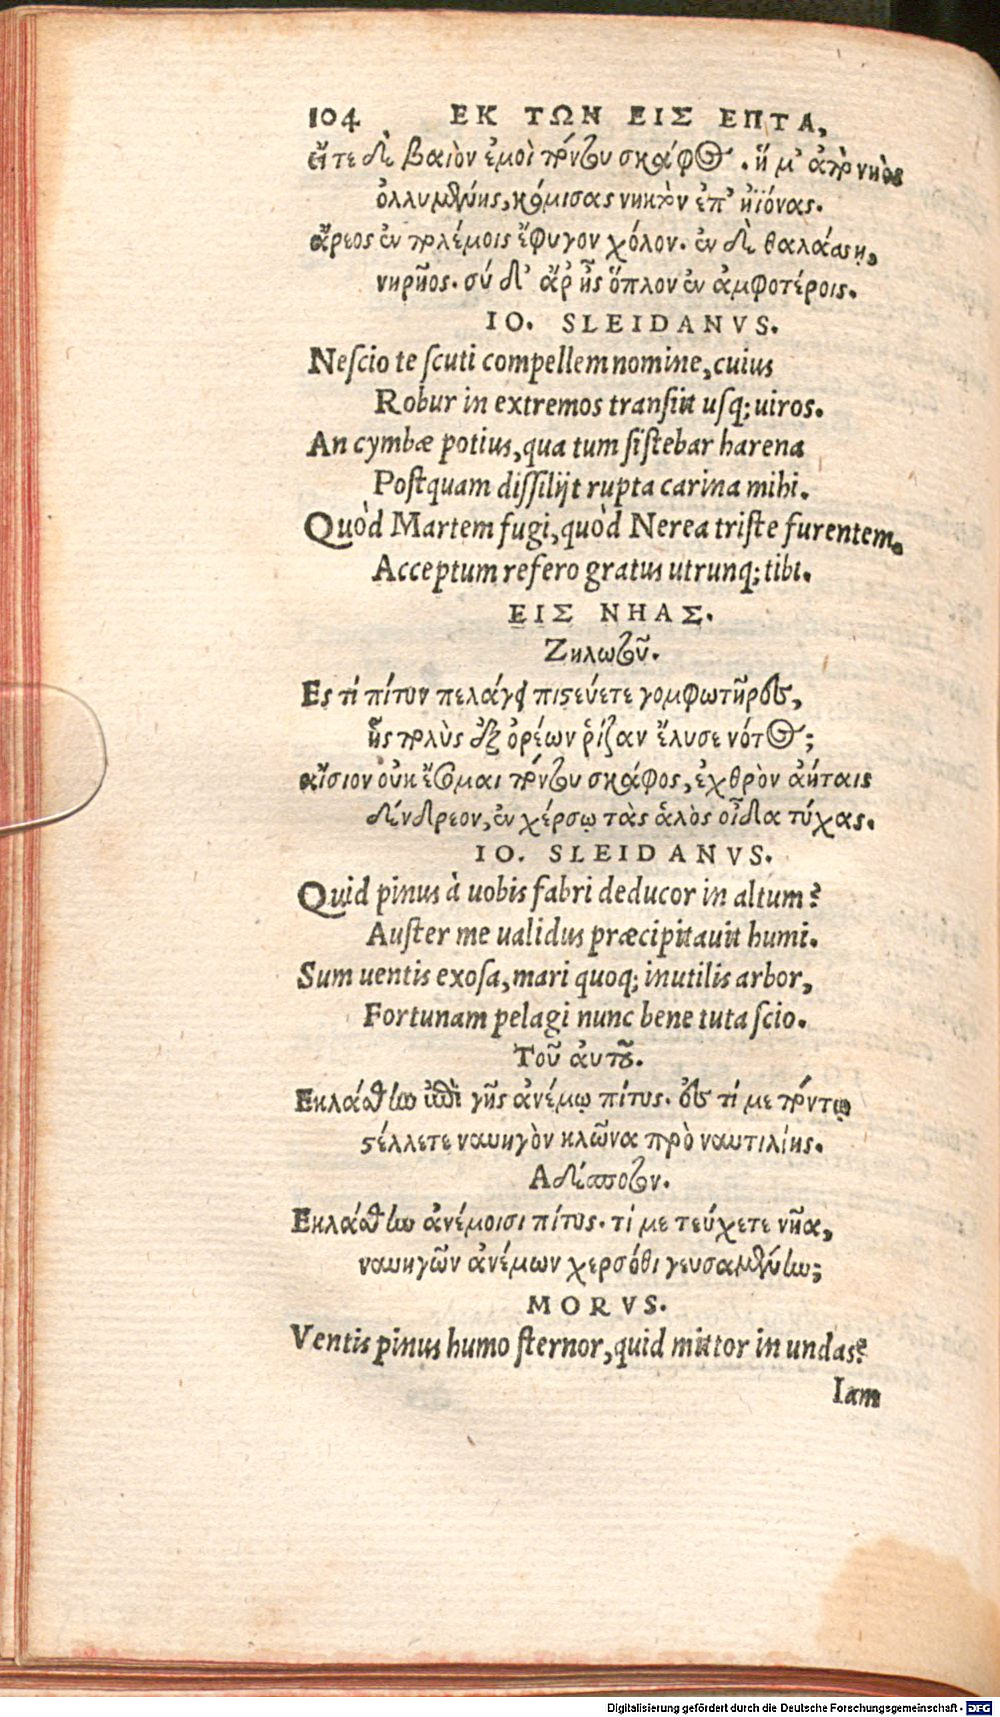 104 ΕΚ ΤΩΝ ΕΙΣ ΕΠΤΑ,
εἴτε δὲ βαιὸν ἐμοὶ τόνδε σκάφος. ἥ μ' ἀπὸ νηὸς
ὀλλυμένης, κόμισας νηκτὸν ἐπ' ἠϊόνας.
ἄρεος ἐν πολέμοις ἔφυγον χόλον. ἐν δὲ θαλάσσῃ,
νηρῆος. σύ δ' ἄρ' ἦς ὅπλον ἐν ἀμφοτέροις.
IO. SLEIDANVS.
Neſcio te ſcuti compellem nomine, cuius
Robur in extremos tranſiit uſq; uiros.
An cymbæ potius, qua tum ſiſtebar harena
Poſtquam diſſilijt rupta carina mihi.
Quòd Martem fugi, quòd Nerea triſte furentem.
Acceptum refero gratus utrunq; tibi.
ΕΙΣ ΝΗΑΣ.
Ζηλωτοῦ.
Ες τί πίτυν πελάγει πιϛεύετε γομφωτῆρες,
ἧς πολὺς ἐξ ὀρέων ῥίζαν ἔλυσε νότος;
αἴσιον οὐκ ἔσομαι πόντου σκάφος, ἐχθρὸν ἀήταις
δένδρεον, ἐν χέρσῳ τὰς ἁλὸς οἶδα τύχας.
IO. SLEIDANVS.
Quid pinus à uobis fabri deducor in altum?
Auſter me ualidus præcipitauit humi.
Sum uentis exoſa, mari quoq; inutilis arbor,
Fortunam pelagi nunc bene tuta ſcio.
Τοῦ αὐτοῦ.
Εκλάσθην ἐπὶ γῆς ἀνέμῳ πίτυς. ἐς τί με πόντῳ
ϛέλλετε ναυηγὸν κλῶνα πρὸ ναυτιλίης.
Αδέσποτον.
Εκλάσθην ἀνέμοισι πίτυς. τί με τεύχετε νῆα,
ναυηγῶν ἀνέμων χερσόθι γευσαμένην;
MORVS.
Ventis pinus humo ſternor, quid mittor in undas?
Iam
Digitalisierung gefördert durch die Deutsche Forschungsgemeinschaft - DFG